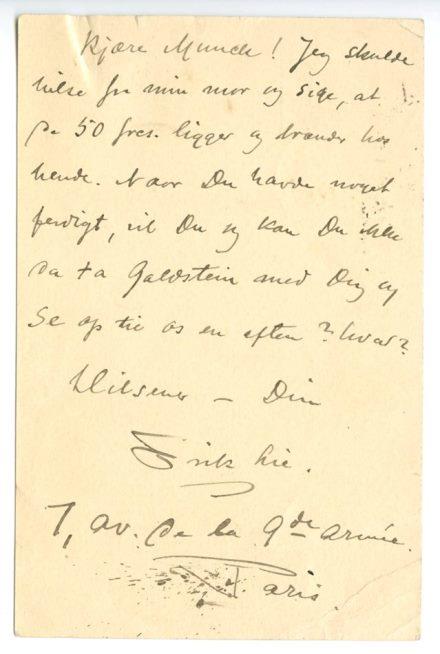 Kjære Munch! Jeg skulde
hilse fra min mor og sige, at
de 50 frcs. ligger og brænder hos
hende. Naar Du havde noget
ferdigt, vil Du og kan Du ikke
da ta Goldstein med Dig og
se op til os en aften? hvad?
Hilsener – Din
Erik Lie.
7, av. de la gde armée.
Paris.